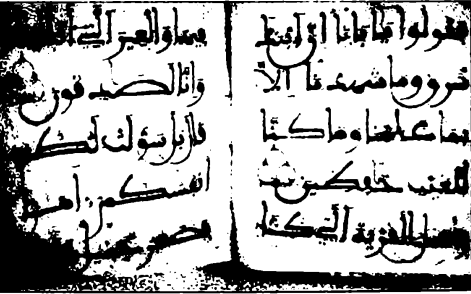 فقولوا يابانا ان ابنك
سرق وما شهدنا الا
بما علمنا وما كنا
للغيب حفظين
وسل القرية التي كنا
فيها والعير التي
وانا لصدقون
قال بل سولت لكم
انفسكم
فصبر جميل